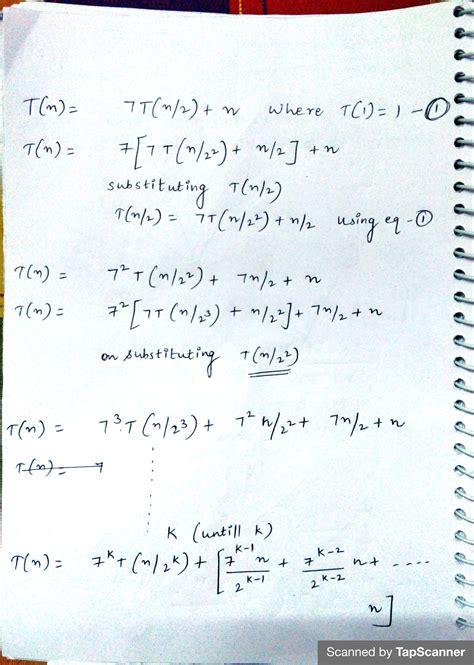 T(n) = 7T(n/2) + n where T(1) = 1 - ①
T(n) = 7[7T(n/2²) + n/2] + n
substituting T(n/2)
T(n/2) = 7T(n/2²) + n/2 using eq - ①
T(n) = 7²T(n/2²) + 7n/2 + n
T(n) = 7²[7T(n/2³) + n/2²] + 7n/2 + n
on substituting T(n/2²)
T(n) = 7³T(n/2³) + 7² n/2² + 7n/2 + n
T(n) = 7
K (untill k)
T(n) = 7^k T(n/2^k) + [7^(k-1) n / 2^(k-1) + 7^(k-2) / 2^(k-2) n + ....
n]
Scanned by TapScanner